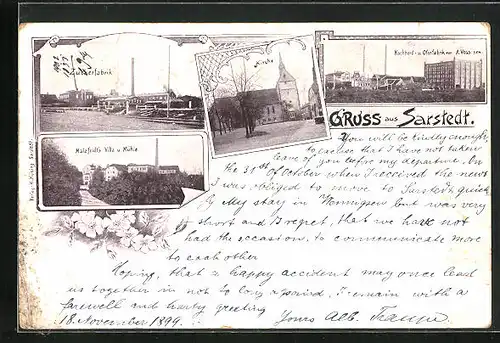 Zuckerfabrik
Kirche
Kochherd- u. Ofenfabrik von A. Voss sen.
Malzfeldt's Villa u. Mühle
GRUSS aus Sarstedt.
You will be kindly enough
to excuse that I have not taken
leave of you before my departure. On
the 31st of October when I received the news
I was obliged to move to Sarstedt quick
ly. My stay in Wennigsen but was very
short and I regret, that we have not
had the occasion, to communicate more
to each other
Hoping, that a happy accident may once lead
us together in not to long a period, I remain with a
farewell and harty greeting
18. November 1899. Yours Alb.